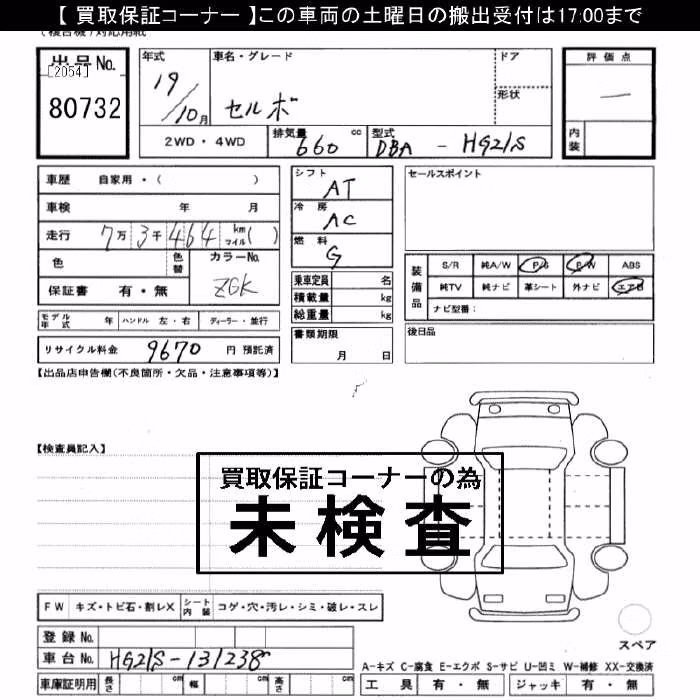 【 買取保証コーナー 】この車両の土曜日の搬出受付は17:00まで
出品No.
[2054]
80732
年式
19/10月
車名・グレード
セルボ
ドア
形状
評価点
—
内装
2WD・4WD
排気量
660 cc
型式
DBA - HG21S
車歴 自家用・( )
車検 年 月
走行 7万3千464 km マイル( )
色
色替
カラーNo.
ZGK
保証書 有・無
シフト
AT
冷房
AC
燃料
G
乗車定員 名
積載量 kg
総重量 kg
書類期限
月 日
セールスポイント
装備品
S/R 純A/W P/S P/W ABS
純TV 純ナビ 革シート 外ナビ エアB
ナビ型番：
後日品
モデル年式 年 ハンドル 左・右 ディーラー・並行
リサイクル料金 9670 円 預託済
【出品店申告欄(不良箇所・欠品・注意事項等)】
【検査員記入】
買取保証コーナーの為
未検査
FW キズ・トビ石・割レX シート内装 コゲ・穴・汚レ・シミ・破レ・スレ
登録No.
車台No. HG21S-131238
車庫証明用 長さ cm 幅 cm 高さ cm
スペア
A-キズ C-腐食 E-エクボ S-サビ U-凹ミ W-補修 XX-交換済
工具 有・無 ジャッキ 有・無